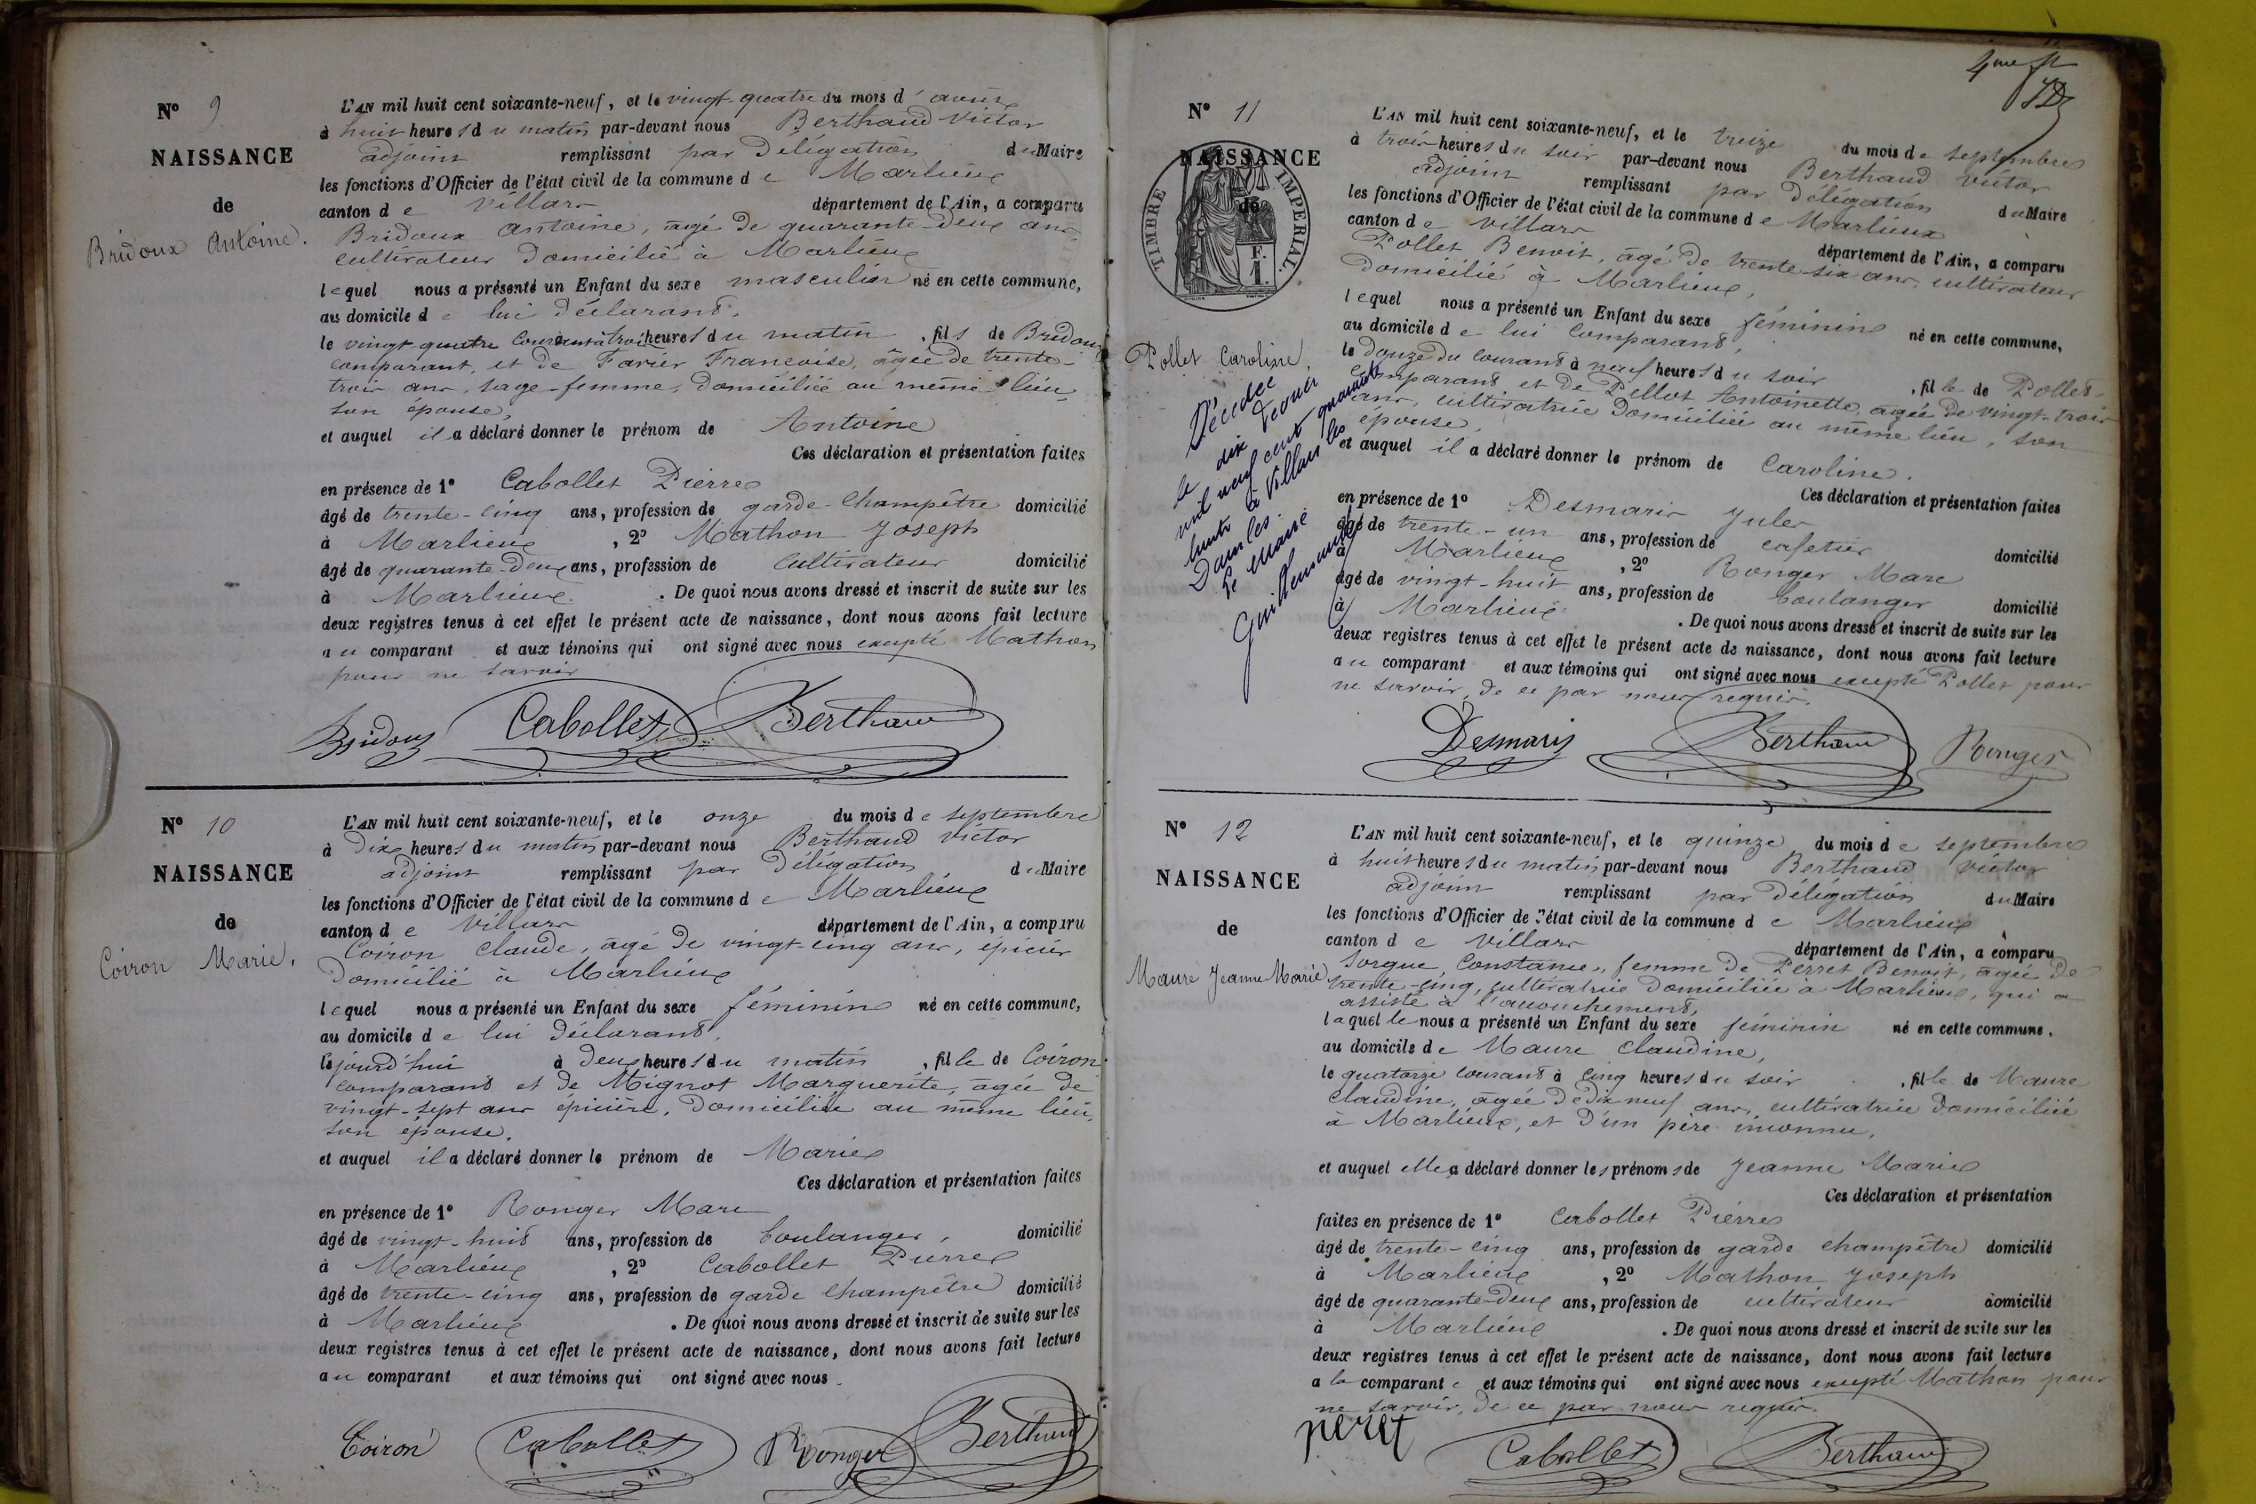 N° 9
NAISSANCE
de
Bridoux Antoine.
L'AN mil huit cent soixante-neuf, et le vingt-quatre du mois d'
à huit heures du matin par-devant nous Berthaud Victor
adjoint remplissant par Délégation du Maire
les fonctions d'Officier de l'état civil de la commune de Marlieux
canton de Villars département de l'Ain, a comparu
Bridoux Antoine, âgé de quarante-deux ans,
cultivateur Domicilié à Marlieux
lequel nous a présenté un Enfant du sexe masculin né en cette commune,
au domicile de lui déclarant.
le vingt quatre courant à trois heures du matin, fils de Bridoux
comparant, et de Favier Francoise, âgée de trente-
trois ans, sage-femme, Domiciliée au même lieu,
son épouse,
et auquel il a déclaré donner le prénom de Antoine
Ces déclaration et présentation faites
en présence de 1° Cabollet Pierre
âgé de trente-cinq ans, profession de garde-Champêtre domicilié
à Marlieux, 2° Mathon Joseph
âgé de quarante-Deux ans, profession de Cultivateur domicilié
à Marlieux. De quoi nous avons dressé et inscrit de suite sur les
deux registres tenus à cet effet le présent acte de naissance, dont nous avons fait lecture
au comparant et aux témoins qui ont signé avec nous excepté Mathon
pour ne savoir
Bridoux Cabollet Berthaud
N° 10
NAISSANCE
de
Coiron Marie.
L'AN mil huit cent soixante-neuf, et le onze du mois de septembre
à Dix heures du matin par-devant nous Berthaud Victor
adjoint remplissant par Délégation du Maire
les fonctions d'Officier de l'état civil de la commune de Marlieux
canton de Villars département de l'Ain, a comparu
Coiron Claude, âgé de vingt-cinq ans, épicier
Domicilié à Marlieux
lequel nous a présenté un Enfant du sexe féminin né en cette commune,
au domicile de lui déclarant,
le jourd'hui à deux heures du matin, fille de Coiron
comparant et de Mignot Marguerite, âgée de
vingt-sept ans épicière, Domiciliée au même lieu,
son épouse.
et auquel il a déclaré donner le prénom de Marie
Ces déclaration et présentation faites
en présence de 1° Ronger Marc
âgé de vingt-huit ans, profession de boulanger, domicilié
à Marlieux, 2° Cabollet Pierre
âgé de trente-cinq ans, profession de garde Champêtre domicilié
à Marlieux. De quoi nous avons dressé et inscrit de suite sur les
deux registres tenus à cet effet le présent acte de naissance, dont nous avons fait lecture
au comparant et aux témoins qui ont signé avec nous.
Coiron Cabollet Ronger Berthaud
4me
N° 11
NAISSANCE
de
TIMBRE IMPERIAL.
F.
1.
Pollet Caroline.
Décédée
le dix
mil neuf cent quarante
huit à Villars les
Dombes.
Le Maire
L'AN mil huit cent soixante-neuf, et le treize du mois de septembre
à trois heures du soir par-devant nous Berthaud Victor
adjoint remplissant par Délégation du Maire
les fonctions d'Officier de l'état civil de la commune de Marlieux
canton de Villars département de l'Ain, a comparu
Pollet Benoit, âgé de trente-six ans, cultivateur
domicilié à Marlieux,
lequel nous a présenté un Enfant du sexe féminin né en cette commune,
au domicile de lui Comparant,
le douze du courant à neuf heures du soir, fille de Pollet
Comparant et de Pellot Antoinette, âgée de vingt-trois
ans, cultivatrice Domiciliée au même lieu, son
épouse,
et auquel il a déclaré donner le prénom de Caroline.
Ces déclaration et présentation faites
en présence de 1° Desmaris Jules
âgé de trente-un ans, profession de cafetier domicilié
à Marlieux, 2° Ronger Marc
âgé de vingt-huit ans, profession de boulanger domicilié
à Marlieux. De quoi nous avons dressé et inscrit de suite sur les
deux registres tenus à cet effet le présent acte de naissance, dont nous avons fait lecture
au comparant et aux témoins qui ont signé avec nous excepté Pollet pour
ne savoir, de ce par nous requis.
Desmaris Berthaud Ronger
N° 12
NAISSANCE
de
Maure Jeanne Marie
L'AN mil huit cent soixante-neuf, et le quinze du mois de septembre
à huit heures du matin par-devant nous Berthaud Victor
adjoint remplissant par Délégation du Maire
les fonctions d'Officier de l'état civil de la commune de Marlieux
canton de Villars département de l'Ain, a comparu
Sorgue, Constance, femme de Perret Benoit, âgée de
trente-cinq, cultivatrice Domiciliée à Marlieux, qui a
assisté à l'accouchement,
laquelle nous a présenté un Enfant du sexe féminin né en cette commune,
au domicile de Maure Claudine,
le quatorze courant à cinq heures du soir, fille de Maure
Claudine, âgée de dix neuf ans, cultivatrice Domiciliée
à Marlieux, et d'un père inconnu.
et auquel elle a déclaré donner les prénoms de Jeanne Marie
Ces déclaration et présentation
faites en présence de 1° Cabollet Pierre
âgé de trente-cinq ans, profession de garde champêtre domicilié
à Marlieux, 2° Mathon Joseph
âgé de quarante-deux ans, profession de cultivateur domicilié
à Marlieux. De quoi nous avons dressé et inscrit de suite sur les
deux registres tenus à cet effet le présent acte de naissance, dont nous avons fait lecture
a la comparante et aux témoins qui ont signé avec nous excepté Mathon pour
ne savoir, de ce par nous requis.
peret Cabollet Berthaud